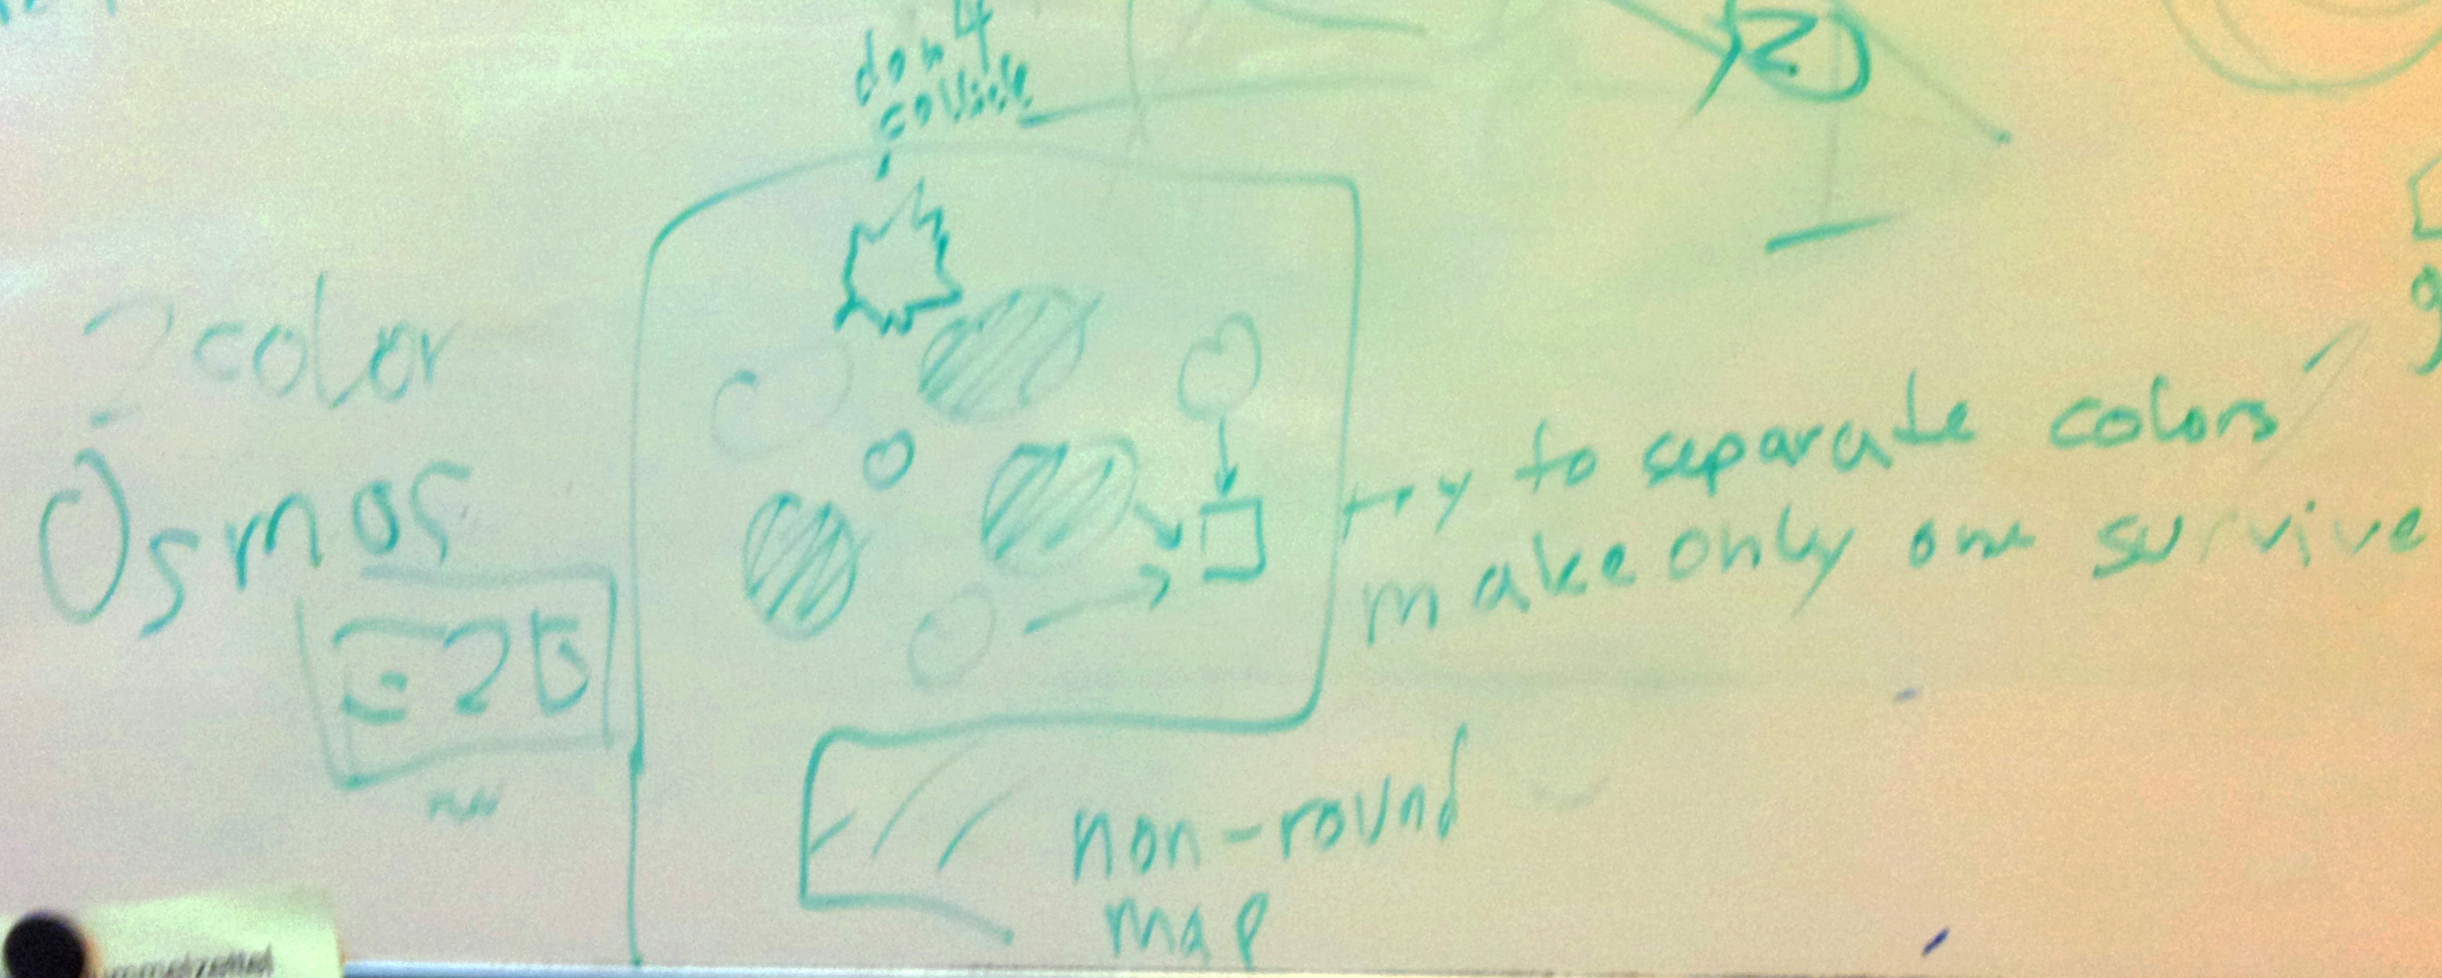 don't
collide
2 color
Osmos
try to separate colors
make only one survive
non-round
map